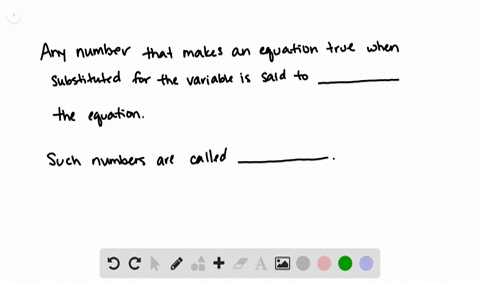 Any number that makes an equation true when
substituted for the variable is said to __________
the equation.
Such numbers are called __________.